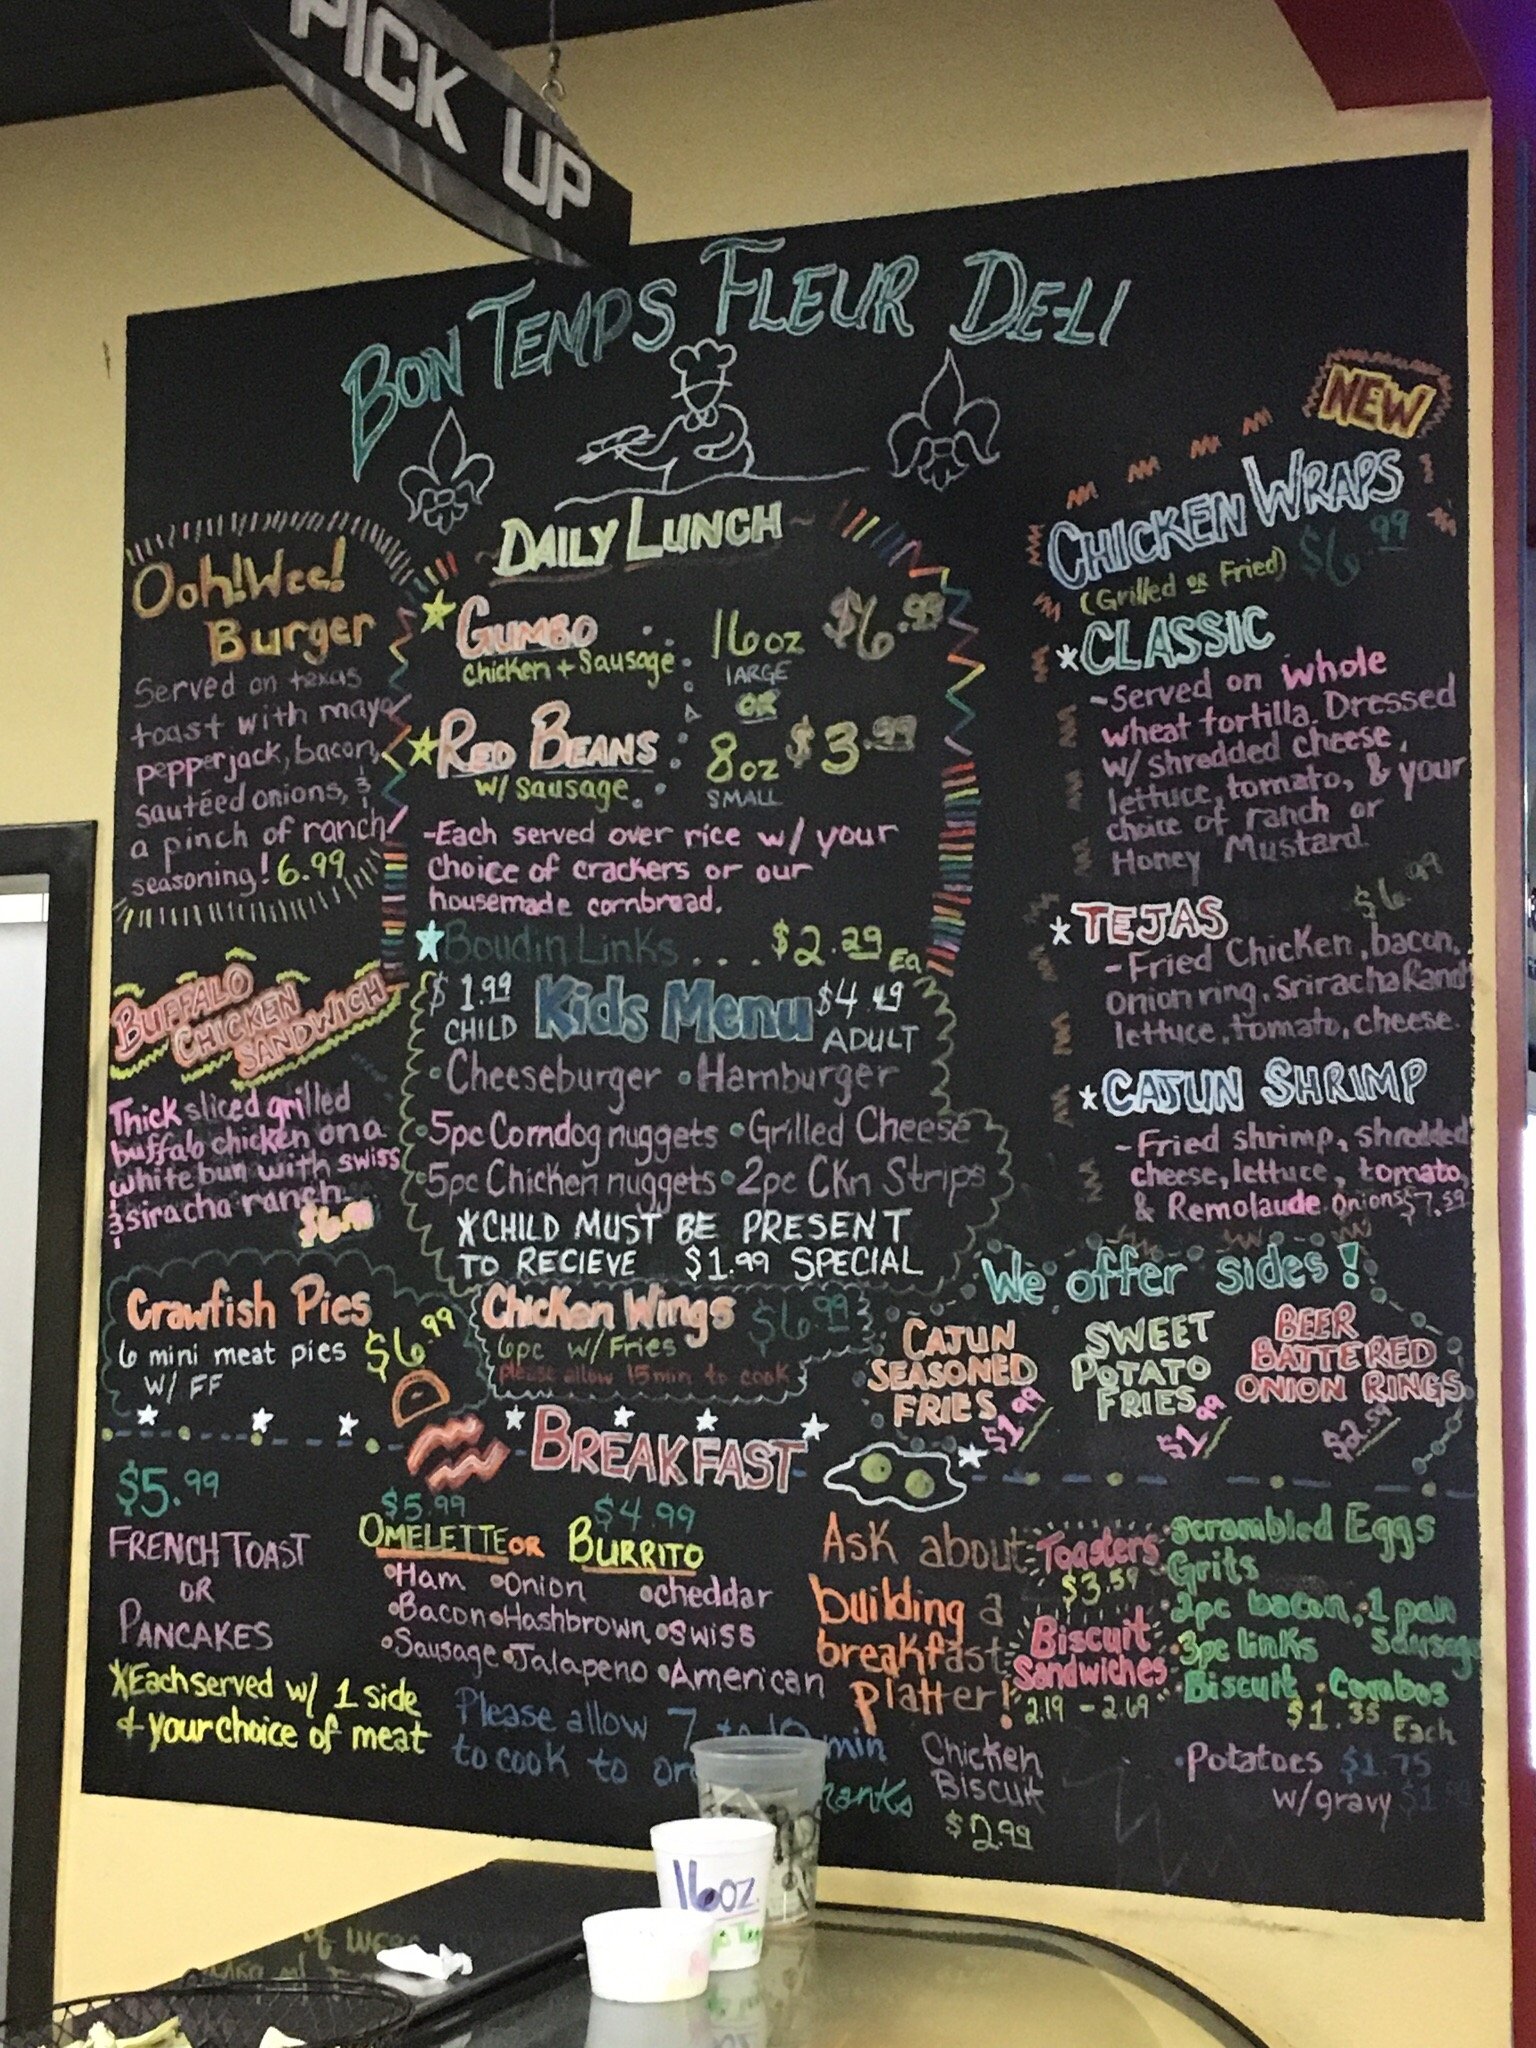 PICK UP
BON TEMPS FLEUR DELI
Ooh! Wee!
Burger
Served on texas
toast with mayo
pepperjack, bacon,
sautéed onions, &
a pinch of ranch
seasoning! 6.99
BUFFALO
CHICKEN
SANDWICH
Thick sliced grilled
buffalo chicken on a
white bun with swiss
& siracha ranch
$6.99
Crawfish Pies
6 mini meat pies $6.99
W/ FF
DAILY LUNCH
GUMBO 16oz $6.99
Chicken + Sausage LARGE
OR
RED BEANS 8oz $3.99
w/ Sausage SMALL
-Each served over rice w/ your
choice of crackers or our
housemade cornbread.
Boudin Links.... $2.29 Ea
$1.99 Kids Menu $4.49
CHILD ADULT
•Cheeseburger •Hamburger
•5pc Corndog nuggets •Grilled Cheese
•5pc Chicken nuggets •2pc CKn Strips
*CHILD MUST BE PRESENT
TO RECIEVE $1.99 SPECIAL
Chicken Wings $6.99
6pc w/ Fries
please allow 15 min to cook
NEW
CHICKEN WRAPS
(Grilled OR Fried) $6.99
*CLASSIC
-Served on whole
wheat tortilla. Dressed
w/ shredded cheese,
lettuce, tomato, & your
choice of ranch or
Honey Mustard.
$6.99
*TEJAS
-Fried Chicken, bacon,
onion ring, Sriracha Ranch
lettuce, tomato, cheese.
*CAJUN SHRIMP
-Fried shrimp, shredded
cheese, lettuce, tomato,
& Remolaude. Onions $7.59
We offer sides!
CAJUN
SEASONED
FRIES $1.99
SWEET
POTATO
FRIES $1.99
BEER
BATTERED
ONION RINGS
$2.59
BREAKFAST
$5.99
FRENCH TOAST
OR
PANCAKES
*Each served w/ 1 side
& your choice of meat
$5.99 $4.99
OMELETTE OR BURRITO
•Ham •Onion •cheddar
•Bacon •Hashbrown •Swiss
•Sausage •Jalapeno •American
Please allow 7 to 10 min
to cook to
Ask about
building a
breakfast
platter!
Toasters
$3.59
Biscuit
Sandwiches
2.19 - 2.69
Chicken
Biscuit
$2.99
•scrambled Eggs
•Grits
•2pc bacon, •1 pan
Sausage
•3pc links
•Biscuit •Combos
$1.35 Each
•Potatoes $1.75
w/gravy
16oz.